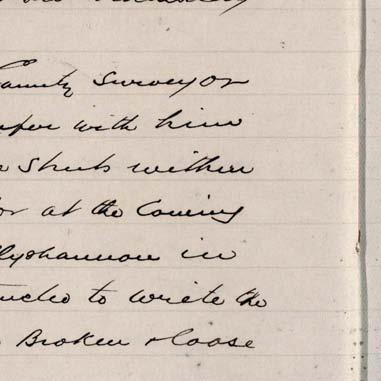 County Surveyor
with him
Streets within
or at the Coming
lyshannon in
to write the
Broken & loose